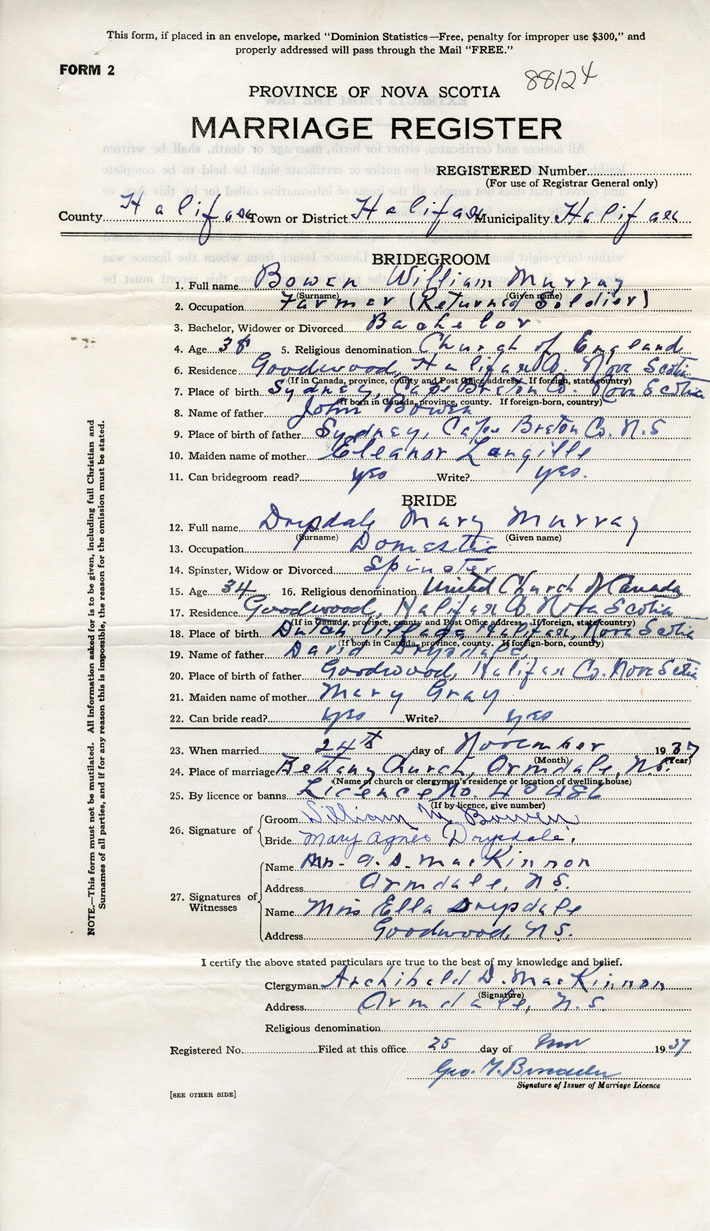 This form, if placed in an envelope, marked "Dominion Statistics—Free, penalty for improper use $300," and
properly addressed will pass through the Mail "FREE."
FORM 2
88124
PROVINCE OF NOVA SCOTIA
MARRIAGE REGISTER
REGISTERED Number
(For use of Registrar General only)
County Halifax Town or District Halifax Municipality Halifax
BRIDEGROOM
1. Full name Bowen William Murray
(Surname) (Given name)
2. Occupation Farmer (Returned Soldier)
3. Bachelor, Widower or Divorced Bachelor
4. Age 38 5. Religious denomination Church of England
6. Residence Goodwood, Halifax Co. Nova Scotia
(If in Canada, province, county and Post Office address. If foreign, state country)
7. Place of birth Sydney, Cape Breton Co. Nova Scotia
(If born in Canada, province, county. If foreign-born, country)
8. Name of father John Bowen
9. Place of birth of father Sydney, Cape Breton Co. N.S
10. Maiden name of mother Eleanor Langille
11. Can bridegroom read? yes Write? yes.
BRIDE
12. Full name Drysdale Mary Murray
(Surname) (Given name)
13. Occupation Domestic
14. Spinster, Widow or Divorced Spinster
15. Age 34 16. Religious denomination United Church of Canada
17. Residence Goodwood, Halifax Co Nova Scotia
(If in Canada, province, county and Post Office address. If foreign, state country)
18. Place of birth Dutch Village Halifax, Nova Scotia
(If born in Canada, province, county. If foreign-born, country)
19. Name of father David Drysdale
20. Place of birth of father Goodwood, Halifax Co. Nova Scotia
21. Maiden name of mother Mary Gray
22. Can bride read? yes Write? yes
23. When married 24th day of November 1937
(Month) (Year)
24. Place of marriage Bethany Church, Armdale, N.S.
(Name of church or clergyman's residence or location of dwelling house)
25. By licence or banns Licence No.
(If by licence, give number)
26. Signature of
Groom William M Bowen
Bride Mary Agnes Drysdale.
27. Signatures of Witnesses
Name Mrs. A. D. MacKinnon
Address Armdale, N.S.
Name Miss Ella Drysdale
Address Goodwood, N.S.
NOTE.—This form must not be mutilated. All information asked for is to be given, including full Christian and
Surnames of all parties, and if for any reason this is impossible, the reason for the omission must be stated.
I certify the above stated particulars are true to the best of my knowledge and belief.
Clergyman Archibald D. MacKinnon
(Signature)
Address Armdale, N.S.
Religious denomination
Registered No. Filed at this office 25 day of Nov 1937
Geo. 
Signature of Issuer of Marriage Licence
[SEE OTHER SIDE]